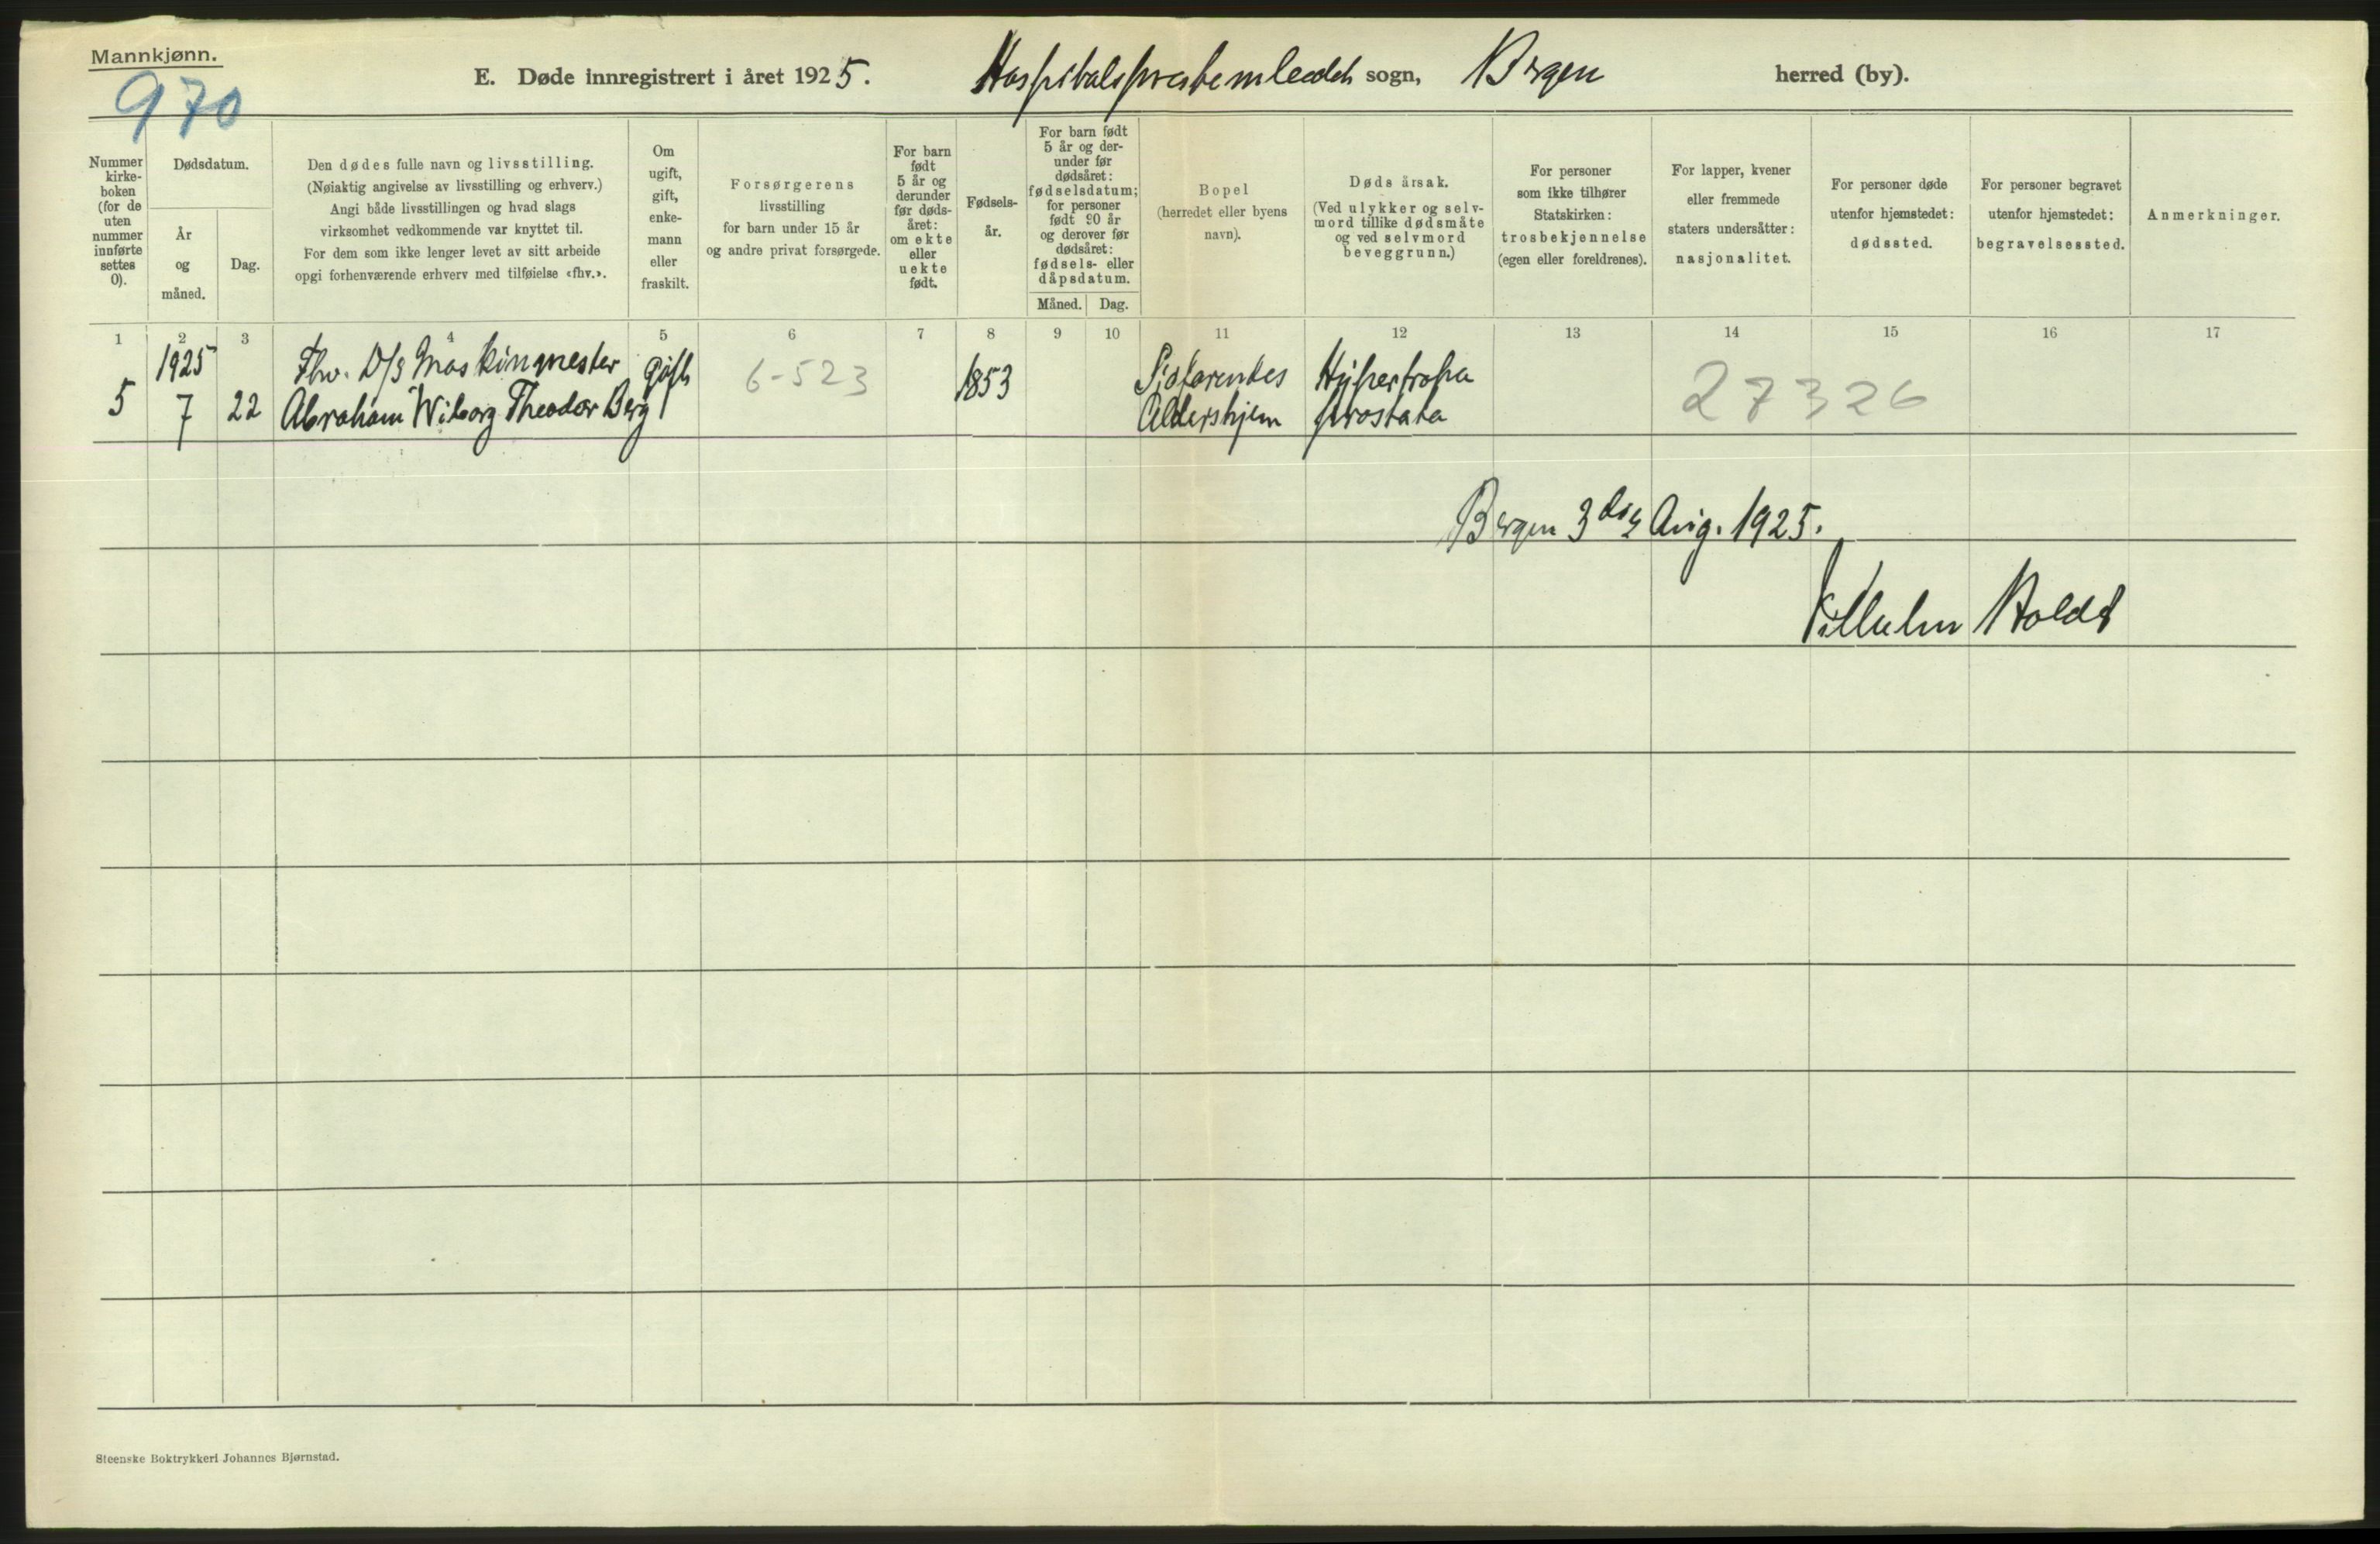 Mannkjønn.
970
E. Døde innregistrert i året 1925. Hospitalsprestembedet sogn, Bergen herred (by).
Nummer
kirke-
boken
(for de
uten
nummer
innførte
settes
0).
Dødsdatum.
År
og
måned.
Dag.
Den dødes fulle navn og livsstilling.
(Nøiaktig angivelse av livsstilling og erhverv.)
Angi både livsstillingen og hvad slags
virksomhet vedkommende var knyttet til.
For dem som ikke lenger levet av sitt arbeide
opgi forhenværende erhverv med tilføielse «fhv.».
Om
ugift,
gift,
enke-
mann
eller
fraskilt.
Forsørgerens
livsstilling
for barn under 15 år
og andre privat forsørgede.
For barn
født
5 år og
derunder
før døds-
året:
om ekte
eller
uekte
født.
Fødsels-
år.
For barn født
5 år og der-
under før
dødsåret:
fødselsdatum;
for personer
født 90 år
og derover før
dødsåret:
fødsels- eller
dåpsdatum.
Måned. Dag.
Bopel
(herredet eller byens
navn).
Dødsårsak.
(Ved ulykker og selv-
mord tillike dødsmåte
og ved selvmord
beveggrunn.)
For personer
som ikke tilhører
Statskirken:
trosbekjennelse
(egen eller foreldrenes).
For lapper, kvener
eller fremmede
staters undersåtter:
nasjonalitet.
For personer døde
utenfor hjemstedet:
dødssted.
For personer begravet
utenfor hjemstedet:
begravelsessted.
Anmerkninger.
1 2 3 4 5 6 7 8 9 10 11 12 13 14 15 16 17
1925 Fhv. D/S Maskinmester gift 6-523 1853 Hypertrofia 27326
5 7 22 Abraham Wiborg Theodor Berg Aldershjem prostata
Bergen 3die Aug. 1925.
Vilhelm Holdt
Steenske Boktrykkeri Johannes Bjørnstad.